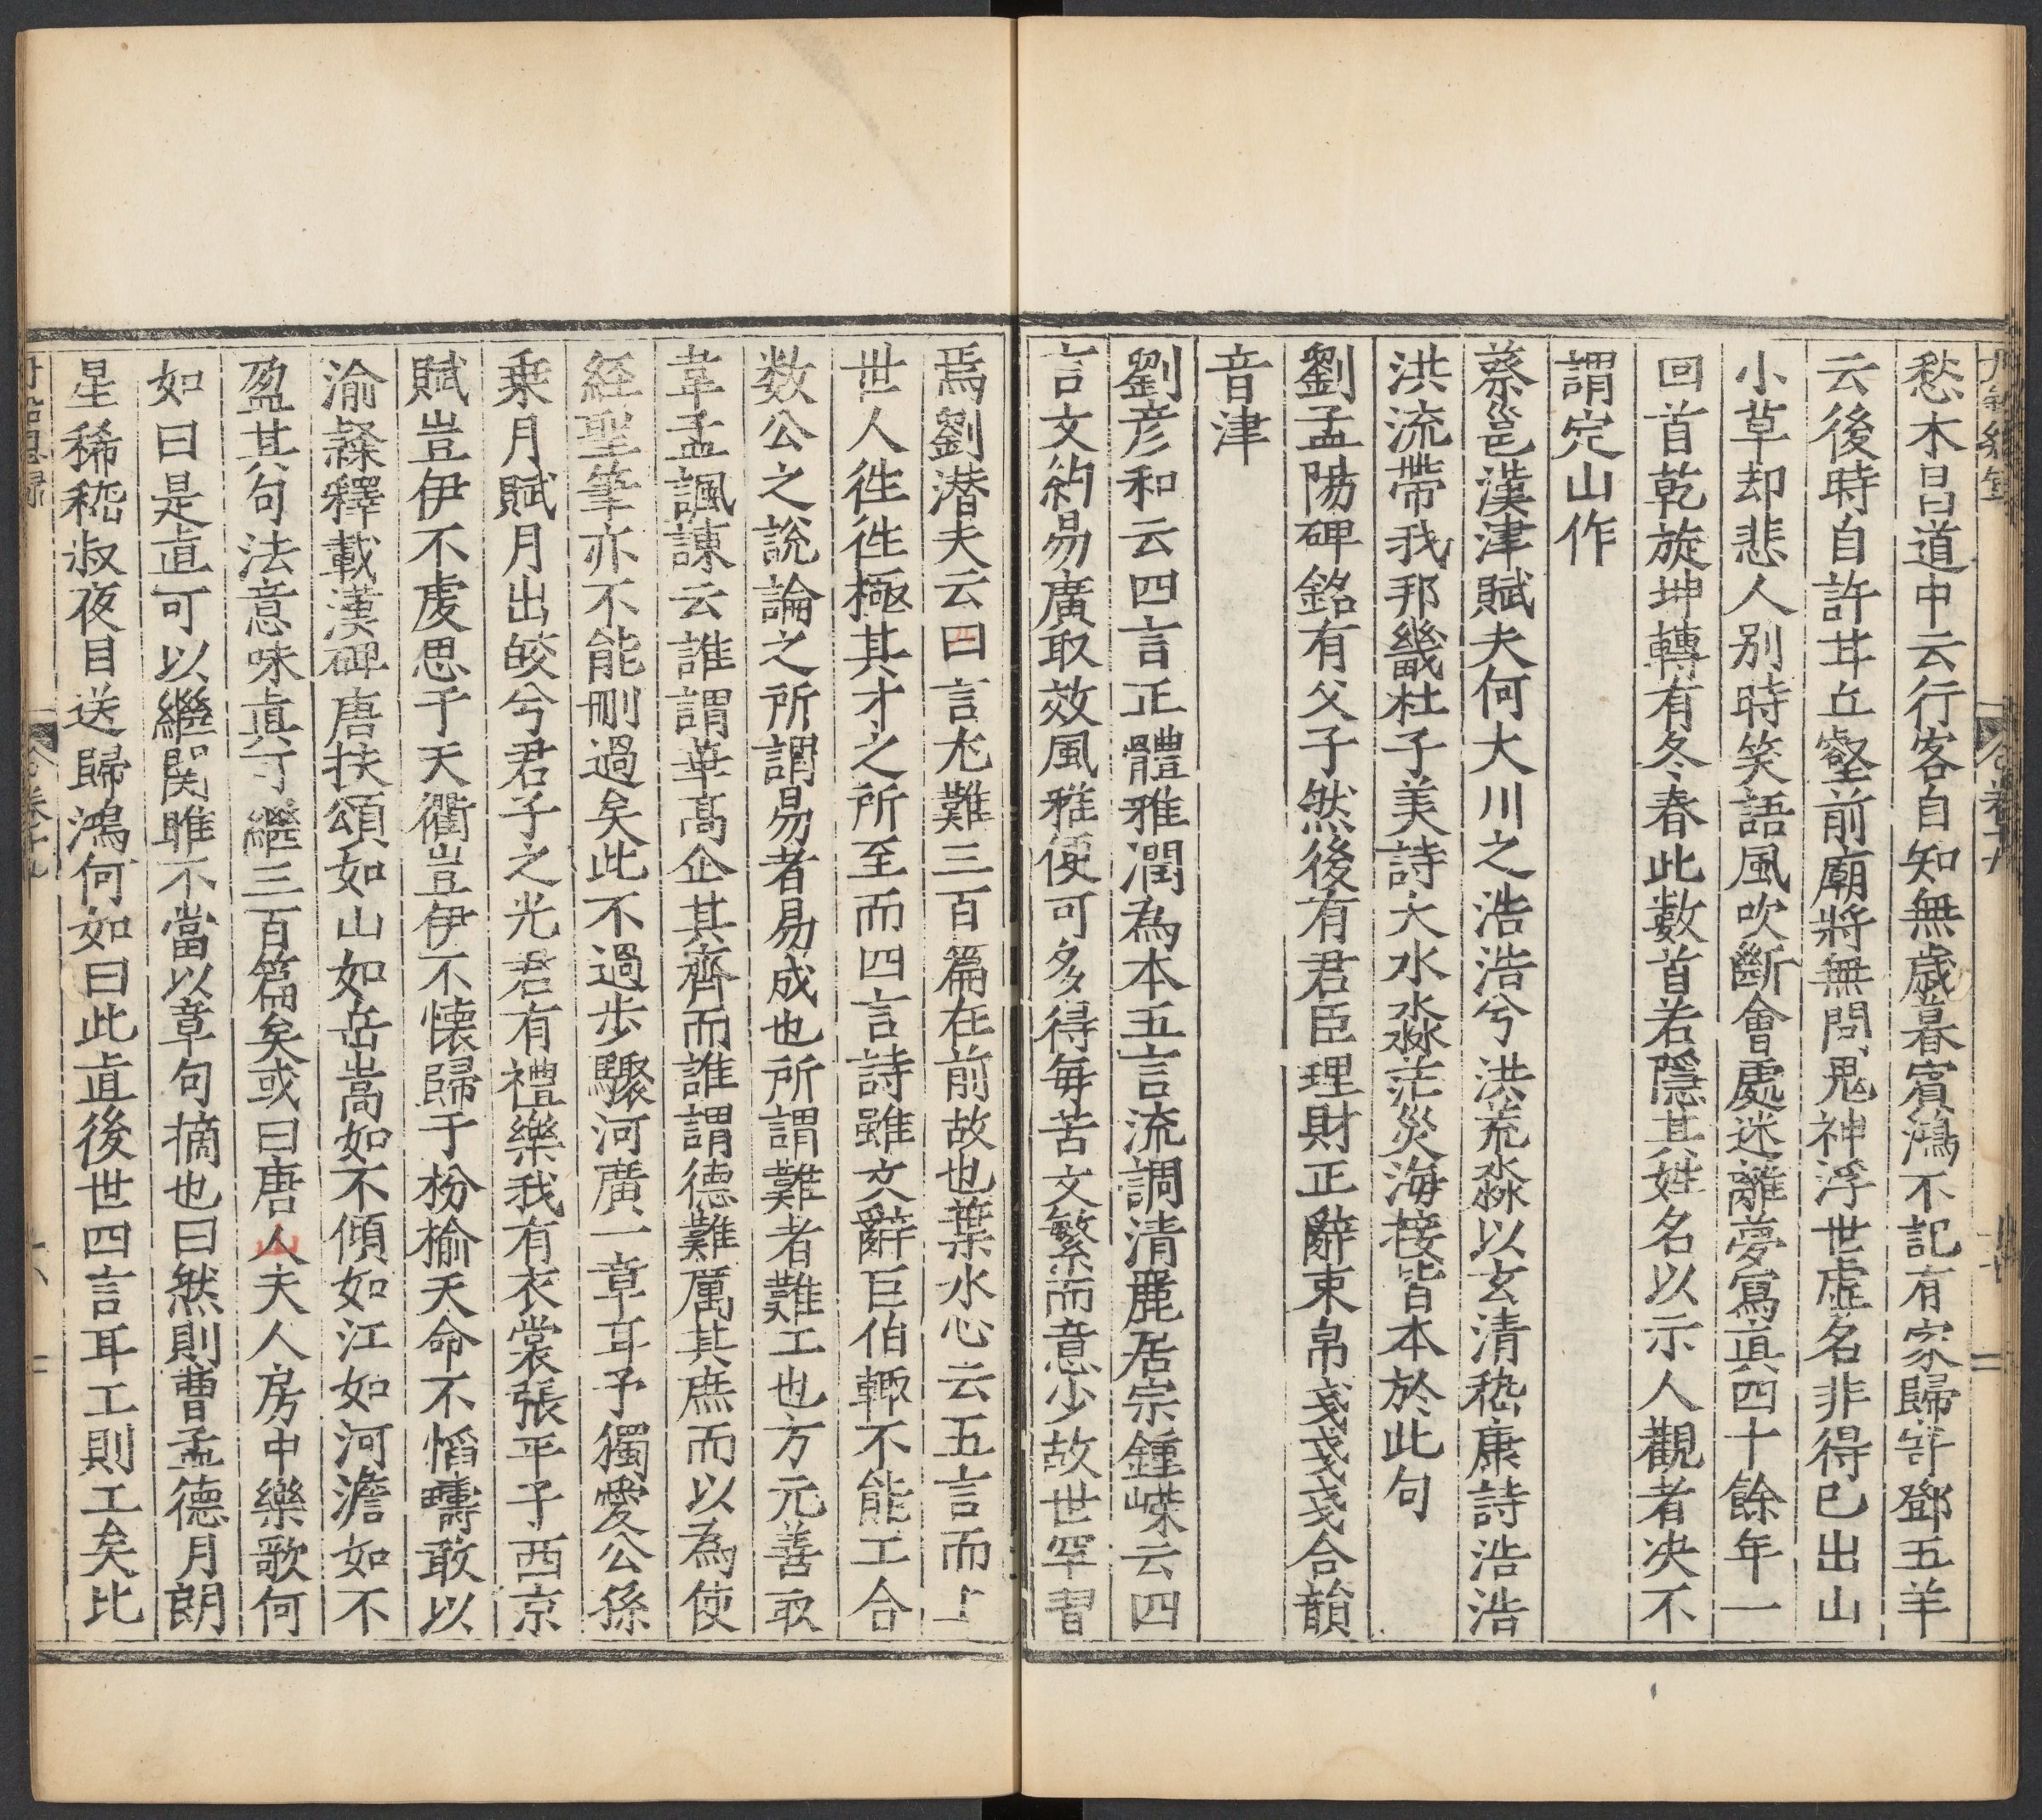 愁木昌道中云行客自知無歲暮賓鴻不記有家歸寄鄧五羊
云後時自許甘丘壑前廟將無問鬼神浮世虛名非得已出山
小草却悲人别時笑語風吹斷會處迷離夢寫真四十餘年一
回首乾旋坤轉有冬春此数首若隱其姓名以示人觀者决不
謂定山作
蔡邕漢津賦夫何大川之浩浩兮洪流淼以玄清嵇康詩浩浩
洪流帶我邦畿杜子美詩大水淼茫炎海接皆本於此句
劉孟陽碑銘有父子然後有君臣理財正辭束帛戔戔戔合韻
音津
劉彥和云四言正體雅潤為本五言流調清麗居宗鍾嶸云四
言文約易廣取效風雅便可多得毎苦文繁而意少故世罕習
焉劉潜夫云曰言尤難三百篇在前故也葉水心云五言而上
世人徃徃極其才之所至而四言詩雖文辭巨伯輙不能工合
数公之說論之所謂易者易成也所謂難者難工也方元善取
韋孟諷諫云誰謂華髙企其齊而誰謂德難厲其庶而以為使
経聖筆亦不能刪過矣此不過步驟河廣一章耳予獨愛公孫
乗月賦月出皎兮君子之光君有禮樂我有衣裳張平子西京
賦豈伊不虔思于天衢豈伊不懐歸于枌榆天命不慆疇敢以
渝繇釋載漢碑唐扶頌如山如岳嵩如不傾如江如河澹如不
盈其句法意味真可繼三百篇矣或曰唐山夫人房中樂歌何
如曰是直可以繼関雎不當以章句摘也曰然則曹孟德月朗
星稀嵇叔夜目送歸鴻何如曰此直後世四言耳工則工矣比